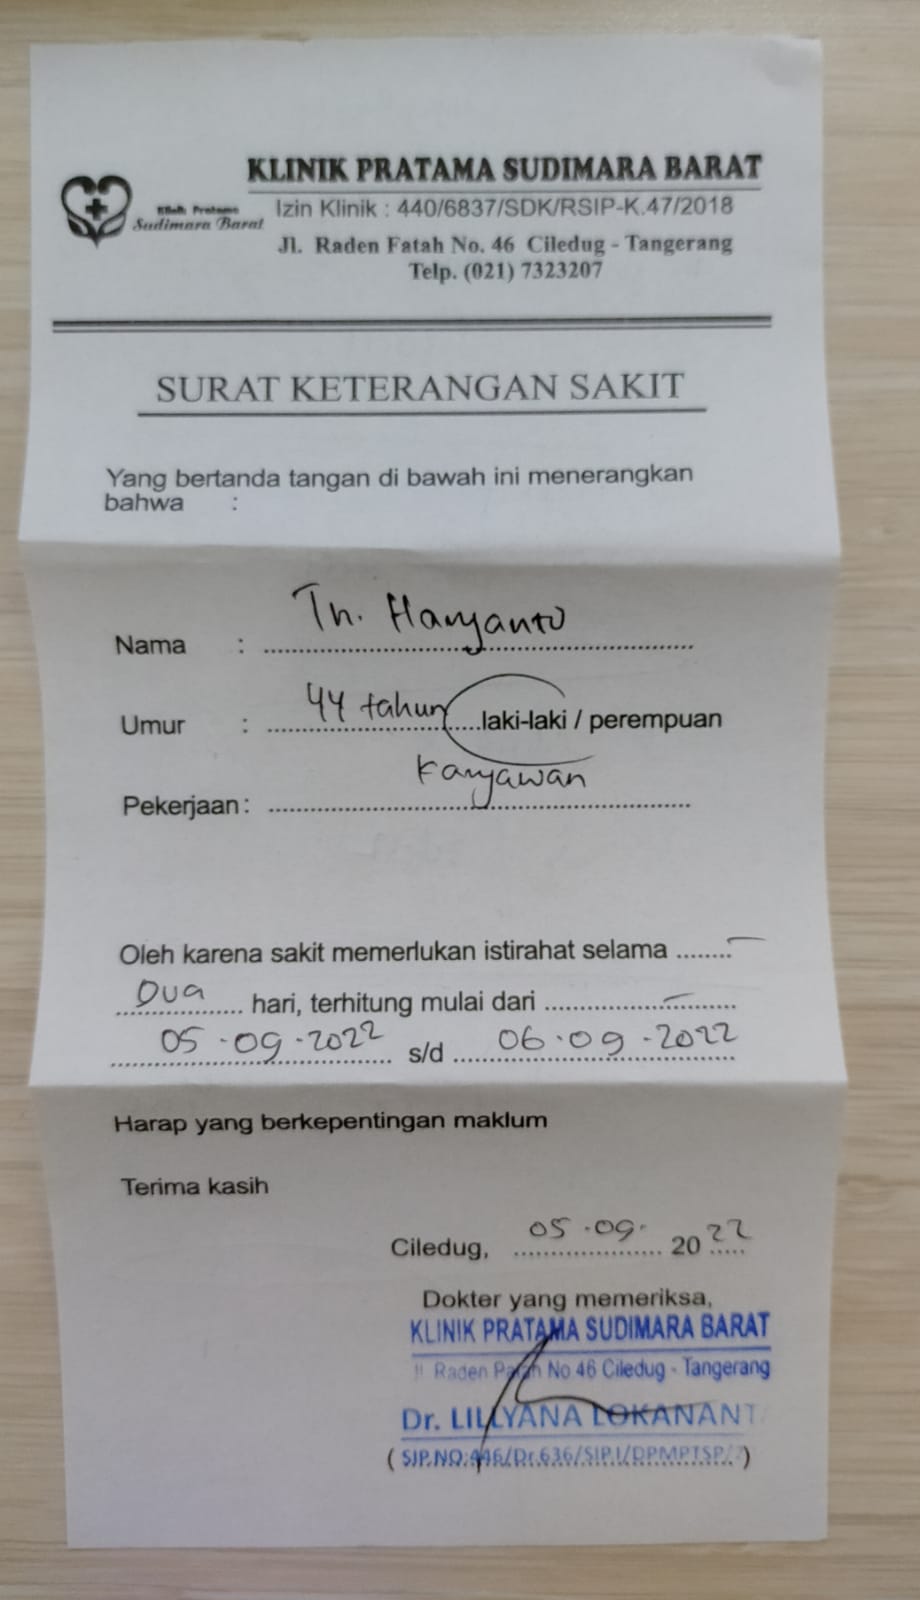 KLINIK PRATAMA SUDIMARA BARAT
Klinik Pratama
Sudimara Barat
Izin Klinik : 440/6837/SDK/RSIP-K.47/2018
Jl. Raden Fatah No. 46 Ciledug - Tangerang
Telp. (021) 7323207
SURAT KETERANGAN SAKIT
Yang bertanda tangan di bawah ini menerangkan
bahwa :
Nama : Tn. Haryanto
Umur : 44 tahun laki-laki / perempuan
Pekerjaan : Karyawan
Oleh karena sakit memerlukan istirahat selama ........
Dua hari, terhitung mulai dari ........
05-09-2022 s/d 06-09-2022
Harap yang berkepentingan maklum
Terima kasih
Ciledug, 05-09- 2022
Dokter yang memeriksa,
KLINIK PRATAMA SUDIMARA BARAT
Raden Patah No 46 Ciledug - Tangerang
Dr. LILLYANA LOKANANT
( SIP.NO:446/Dr.636/SIP.I/DPMPTSP/ )